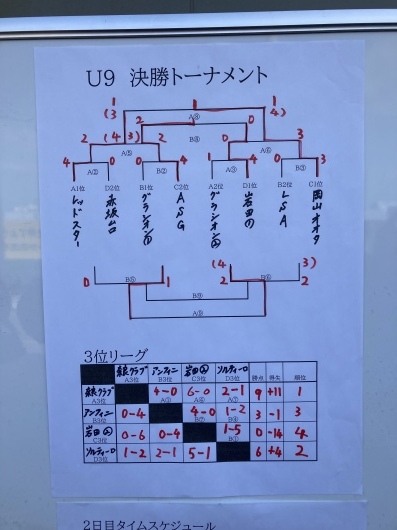 U9 決勝トーナメント
1 1 1
(3 A⑨ 4)
2 0
2 (4 3) 2 B⑧ 0 3
A⑤ A⑥
4 0 0 4 1 4 0 3
A① B① A③ B③
A1位 D2位 B1位 C2位 A2位 D1位 B2位 C1位
レッドスター 赤坂台 グラシオン ASG グラシオン 岩田 LSA 岡山オオタ
0 B⑤ 1 (4 3)
2 B⑥ 2
B⑨
A⑧
3位リーグ
緑クラブ アンフィニ 岩田 ソルティーロ
A3位 B3位 C3位 D3位 勝点 得失 順位
緑クラブ 4-0 6-0 2-1 9 +11 1
A3位
アンフィニ 0-4 4-0 1-2 3 -1 3
B3位
岩田 0-6 0-4 1-5 0 -14 4
C3位
ソルティーロ 1-2 2-1 5-1 6 +4 2
D3位
2日目タイムスケジュール